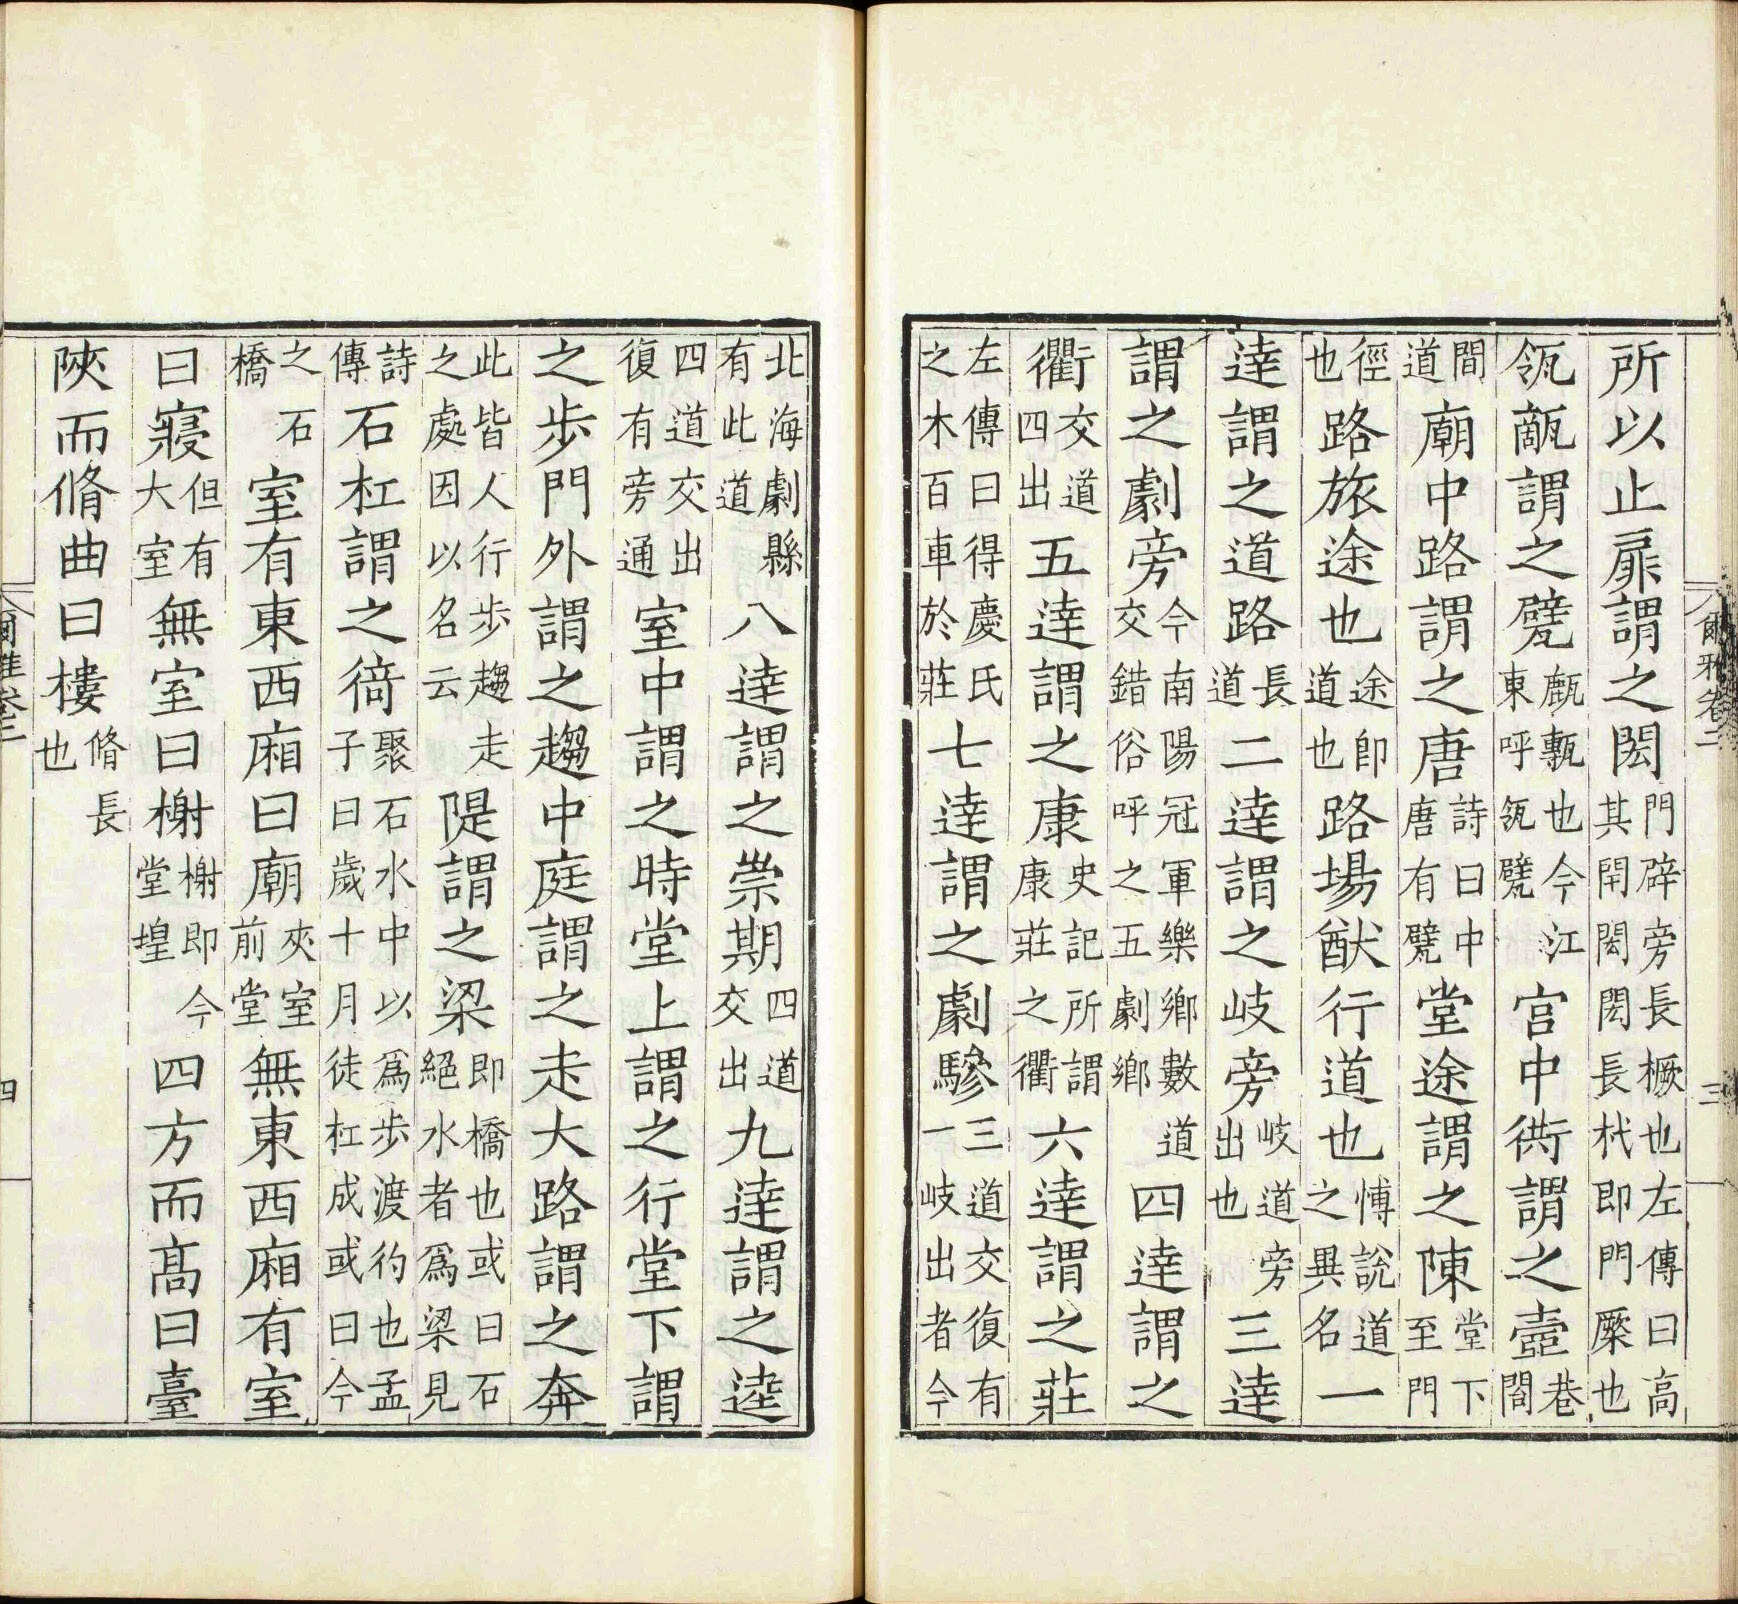 爾雅卷二
三
所以止扉謂之閎門辟旁長橛也左傳曰高其閈閎閎長杙即門橜也
瓴甋謂之甓㼾甎也今江東呼瓴甓宫中衖謂之壼巷閤
間道廟中路謂之唐詩曰中唐有甓堂途謂之陳堂下至門
徑也路旅途也途即道也路場猷行道也愽說道之異名一
達謂之道路長道二達謂之岐旁岐道旁出也三達
謂之劇旁今南陽冠軍樂鄉數道交錯俗呼之五劇鄉四達謂之
衢交道四出五達謂之康史記所謂康莊之衢六達謂之莊
左傳曰得慶氏之木百車於莊七達謂之劇驂三道交復有一岐出者今
北海劇縣有此道八達謂之崇期四道交出九達謂之逵
四道交出復有旁通室中謂之時堂上謂之行堂下謂
之步門外謂之趨中庭謂之走大路謂之奔
此皆人行步趨走之處因以名云隄謂之梁即橋也或曰石絕水者爲梁見
詩傳石杠謂之徛聚石水中以爲步渡彴也孟子曰歲十月徒杠成或曰今
之石橋室有東西廂曰廟夾室前堂無東西廂有室
曰寢但有大室無室曰榭榭即今堂堭四方而高曰臺
陜而脩曲曰樓脩長也
爾雅卷二
四